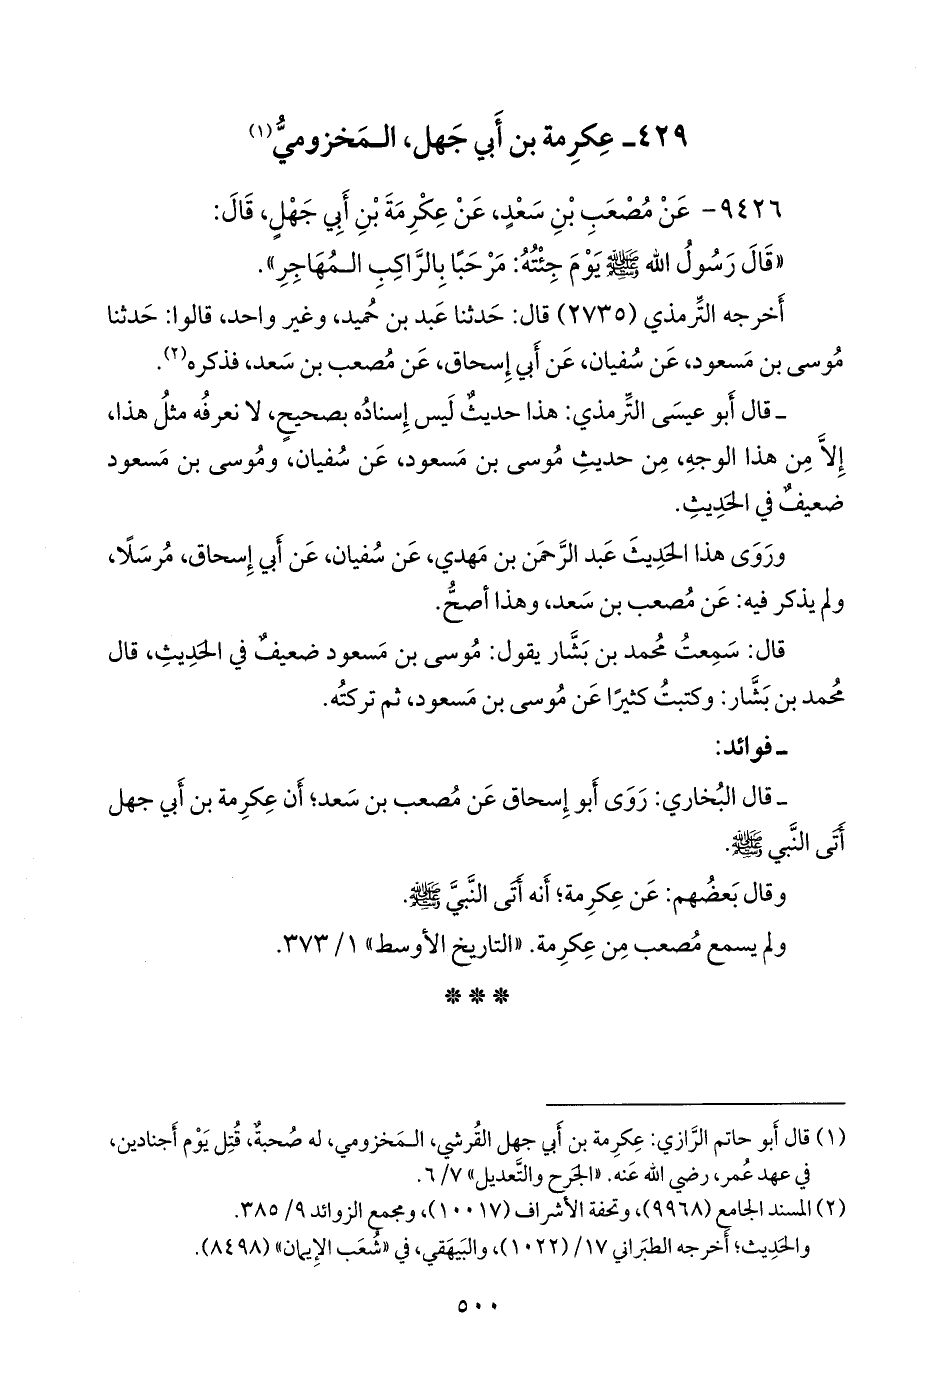 ٤٢٩ـ عِكرِمة بن أَبي جَهل، الـمَخزوميُّ(١)
٩٤٢٦- عَنْ مُصْعَبِ بْنِ سَعْدٍ، عَنْ عِكْرِمَةَ بْنِ أَبِي جَهْلٍ، قَالَ:
«قَالَ رَسُولُ الله ﷺ يَوْمَ جِئْتُهُ: مَرْحَبًا بِالرَّاكِبِ الـمُهَاجِرِ».
أَخرجه التِّرمذي (٢٧٣٥) قال: حَدثنا عَبد بن حُميد، وغير واحد، قالوا: حَدثنا
مُوسى بن مَسعود، عَن سُفيان، عَن أَبي إِسحاق، عَن مُصعب بن سَعد، فذكره(٢).
ـ قال أَبو عيسَى التِّرمذي: هذا حديثٌ لَيس إِسنادُه بصحيحٍ، لا نعرفُه مثلُ هذا،
إِلاَّ مِن هذا الوجهِ، مِن حديثِ مُوسى بن مَسعود، عَن سُفيان، ومُوسى بن مَسعود
ضعيفٌ في الحَدِيثِ.
ورَوَى هذا الحَدِيثَ عَبد الرَّحمَن بن مَهدي، عَن سُفيان، عَن أَبي إِسحاق، مُرسَلًا،
ولم يذكر فيه: عَن مُصعب بن سَعد، وهذا أصحُّ.
قال: سَمِعتُ مُحمد بن بَشَّار يقول: مُوسى بن مَسعود ضعيفٌ في الحَدِيثِ، قال
مُحمد بن بَشَّار: وكتبتُ كثيرًا عَن مُوسى بن مَسعود، ثم تركتُه.
ـ فوائد:
ـ قال البُخاري: رَوَى أَبو إِسحاق عَن مُصعب بن سَعد؛ أَن عِكرِمة بن أَبي جهل
أَتَى النَّبي ﷺ.
وقال بَعضُهم: عَن عِكرِمة؛ أَنه أَتَى النَّبيَّ ﷺ.
ولم يسمع مُصعب مِن عِكرِمة. «التاريخ الأوسط» ١/ ٣٧٣.
***
(١) قال أَبو حاتم الرَّازي: عِكرِمة بن أَبي جهل القُرشي، الـمَخزومي، له صُحبةٌ، قُتِل يَوْم أجنادين،
في عهد عُمر، رضي الله عَنه. «الجَرح والتَّعديل» ٧/ ٦.
(٢) المسند الجامع (٩٩٦٨)، وتحفة الأشراف (١٠٠١٧)، ومجمع الزوائد ٩/ ٣٨٥.
والحَدِيث؛ أَخرجه الطبَراني ١٧/ (١٠٢٢)، والبَيهَقي، في «شُعَب الإِيمان» (٨٤٩٨).
٥٠٠